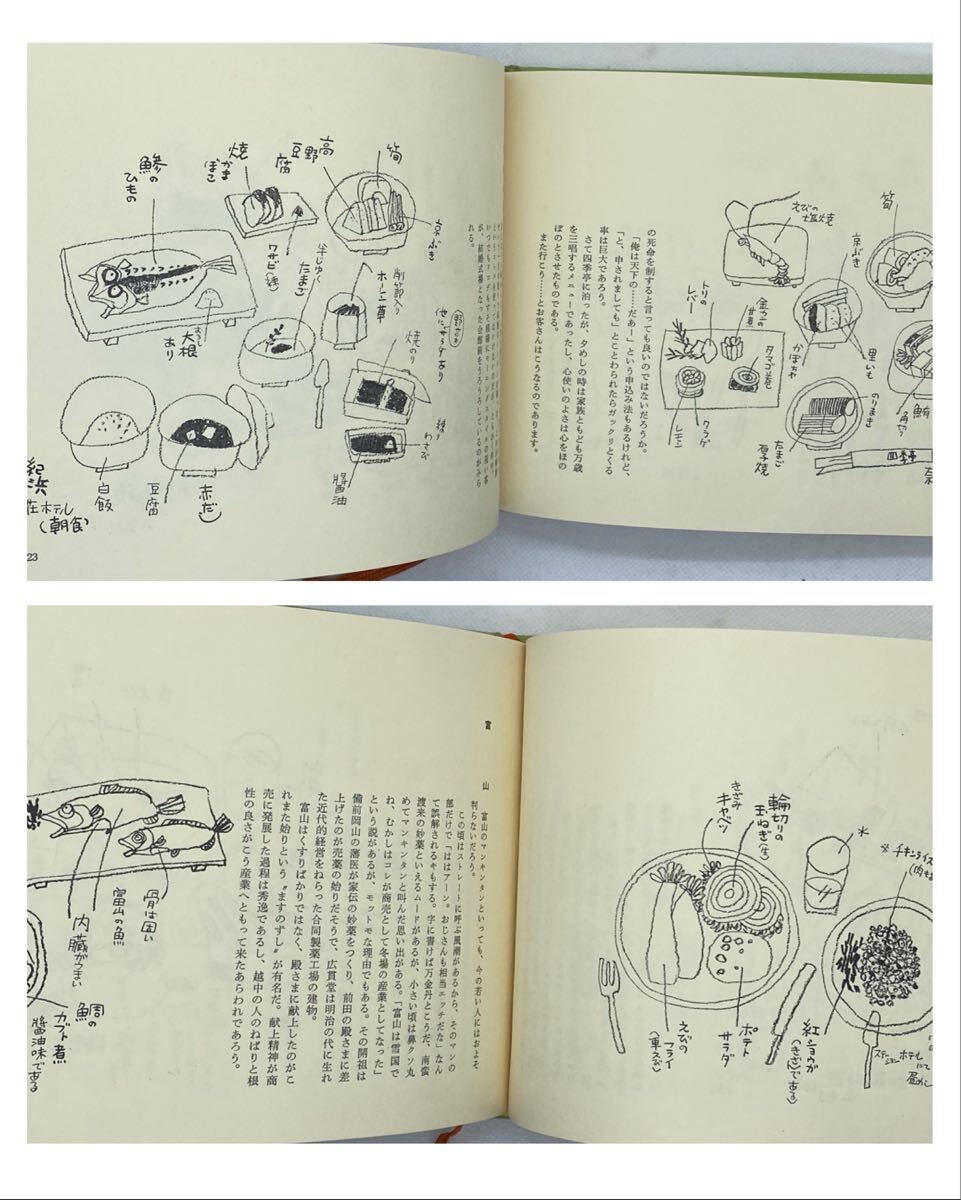 筍
高野豆腐
京ぶき
焼かまぼこ
ワサビ(練)
鯵の
ひもの
大根
おろし
あり
半じゅく
たまご
削節入り
ホーレン草
野さい
他にサラダあり
焼のり
練り
わさび
醤油
赤だし
豆腐
白飯
紀浜
荘ホテル
(朝食)
23
れる。
の死命を制すると言っても良いのではないだろうか。
「俺は天下の……だあー」という申込み法もあるけれど、
「と、申されましても」とことわられたらガックリとくる
率は巨大であろう。
さて四季亭に泊ったが、夕めしの時は家族ともども万歳
を三唱するメニューであったし、心使いのよさは心をほの
ぼのとさせたものである。
また行こう……とお客さんはこうなるのであります。
えびの
塩焼
トリの
レバー
金カンの
甘煮
タマゴ巻
クラゲ
レモン
筍
京ぶき
かぼちゃ
里いも
鮪
角切り
のりまき
たまご
厚焼
富山
富山のマンキンタンといっても、今の若い人にはおよそ
判らないだろう。
この頃はストレートに呼ぶ風潮があるから、そのマンの
部だけで「ははアーン。おじさんも相当エッチだな」なん
て誤解されるキもする。字に書けば万金丹とこうだ、南蛮
渡来の妙薬といえるムードがあるが、小さい頃は鼻クソ丸
めてマンキンタンと叫んだ思い出がある。「富山は雪国で
ね、むかしはコレが商売として冬場の産業としてなった」
という説があるが、モットモな理由でもある。その開祖は
備前岡山の藩医が家伝の妙薬をつくり、前田の殿さまに差
上げたのが売薬の始りだそうで、広貫堂は明治の代に生れ
た近代的経営をねらった合同製薬工場の建物。
富山はくすりばかりではなく、殿さまに献上したのがこ
れまた始りという〝ますのずし〟が有名だ。献上精神が商
売に発展した過程は秀逸であるし、越中の人のねばりと根
性の良さがこう産業へともって来たあらわれであろう。
骨は固い
富山の魚
内臓がうまい
鯛の
カブト煮
醤油味である
輪切りの
玉ねぎ(生)
きざみ
キャベツ
ポテト
サラダ
えびの
フライ
(車えび)
*
※チキンライス
紅ショウが
(きざんである)
ステーションホテル
にて
昼めし